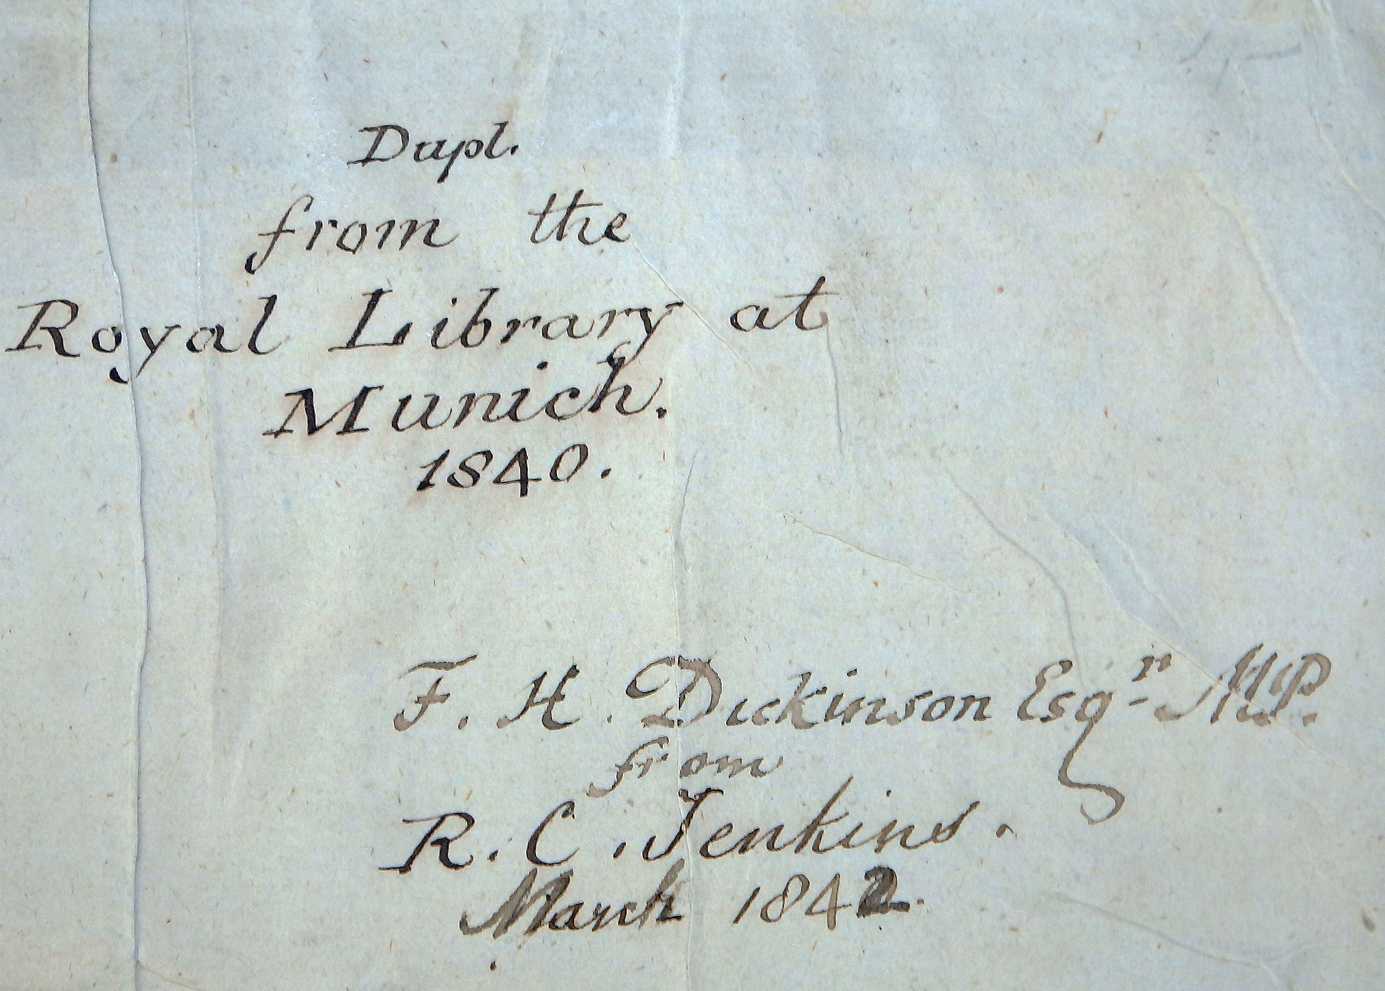 Dupl.
from the
Royal Library at
Munich.
1840.
F. H. Dickinson Esqr. M.P.
from
R. C. Jenkins.
March 1842.